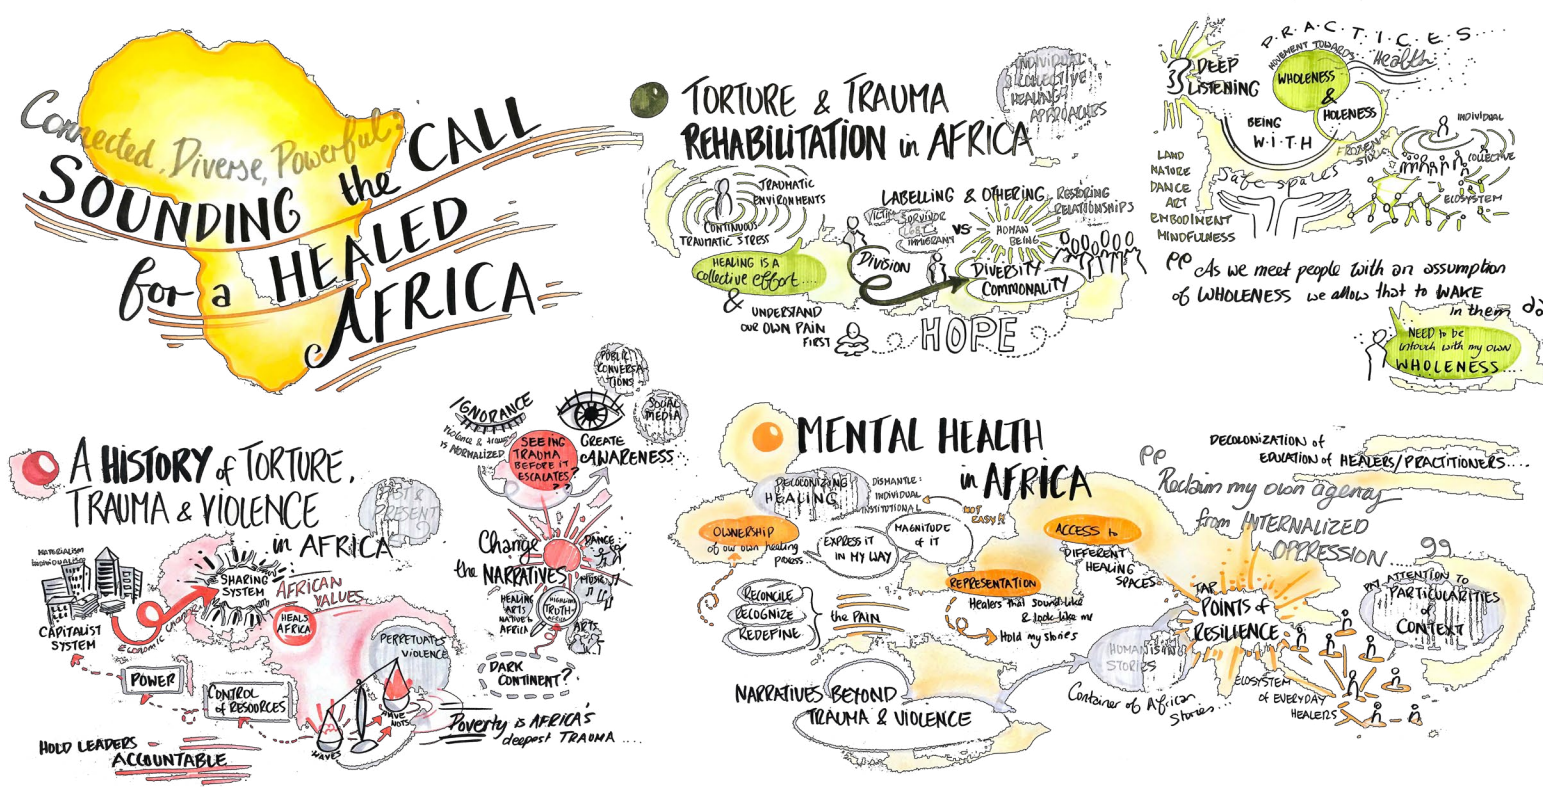 Connected, Diverse, Powerful:
SOUNDING the CALL
for a HEALED
AFRICA
TORTURE & TRAUMA
REHABILITATION in AFRICA
INDIVIDUAL
COLLECTIVE
HEALING?
APPROACHES
TRAUMATIC
ENVIRONMENTS
CONTINUOUS
TRAUMATIC STRESS
HEALING IS A
collective effort....
&
UNDERSTAND
OUR OWN PAIN
FIRST
LABELLING & OTHERING
VICTIM
SURVIVOR
LGBT
IMMIGRANT
VS
HUMAN
BEING
RESTORING
RELATIONSHIPS
Division
DIVERSITY
COMMONALITY
HOPE
P.R.A.C.T.I.C.E.S...
MOVEMENT TOWARDS
Health
DEEP
LISTENING
WHOLENESS
&
HOLENESS
BEING
W.I.T.H
FROZEN
Safe spaces
LAND
NATURE
DANCE
ART
EMBODIMENT
MINDFULNESS
INDIVIDUAL
COLLECTIVE
ECOSYSTEM
As we meet people with an assumption
of WHOLENESS we allow that to WAKE
in them
NEED to be
intouch with my own
WHOLENESS....
A HISTORY of TORTURE,
TRAUMA & VIOLENCE
in AFRICA
PAST &
PRESENT
?
MATERIALISM
INDIVIDUALISM
CAPITALIST
SYSTEM
Economic change
SHARING
SYSTEM
AFRICAN
VALUES
HEALS
AFRICA
POWER
CONTROL
of RESOURCES
HOLD LEADERS
ACCOUNTABLE
PERPETUATES
VIOLENCE
HAVES
HAVE
NOTS
Poverty is AFRICA'S
deepest TRAUMA ....
IGNORANCE
Violence & trauma
is NORMALIZED
SEEING
TRAUMA
BEFORE IT
ESCALATES?
??
PUBLIC
CONVERSA-
TIONS
SOCIAL
MEDIA
CREATE
AWARENESS
Change
the NARRATIVES
DANCE
MUSIC
ARTS
HEALING
ARTS
NATIVE to
AFRICA
TRUTH
DARK
CONTINENT?
MENTAL HEALTH
in AFRICA
DECOLONIZING
HEALING
DISMANTLE:
INDIVIDUAL
INSTITUTIONAL
NOT
EASY!
OWNERSHIP
of our own healing
process
EXPRESS IT
IN MY WAY
MAGNITUDE
of IT
RECONCILE
RECOGNIZE
REDEFINE
the PAIN
REPRESENTATION
Healers that sound like
& look like me
Hold my stories
ACCESS to
DIFFERENT
HEALING
SPACES
NARRATIVES BEYOND
TRAUMA & VIOLENCE
HUMANISING
STORIES
Container of African
Stories...
DECOLONIZATION of
EDUCATION of HEALERS/PRACTITIONERS....
Reclaim my own agency
from INTERNALIZED
OPPRESSION...
TAP
POINTS of
RESILIENCE
ECOSYSTEM
of EVERYDAY
HEALERS
PAY ATTENTION TO
PARTICULARITIES
of
CONTEXT